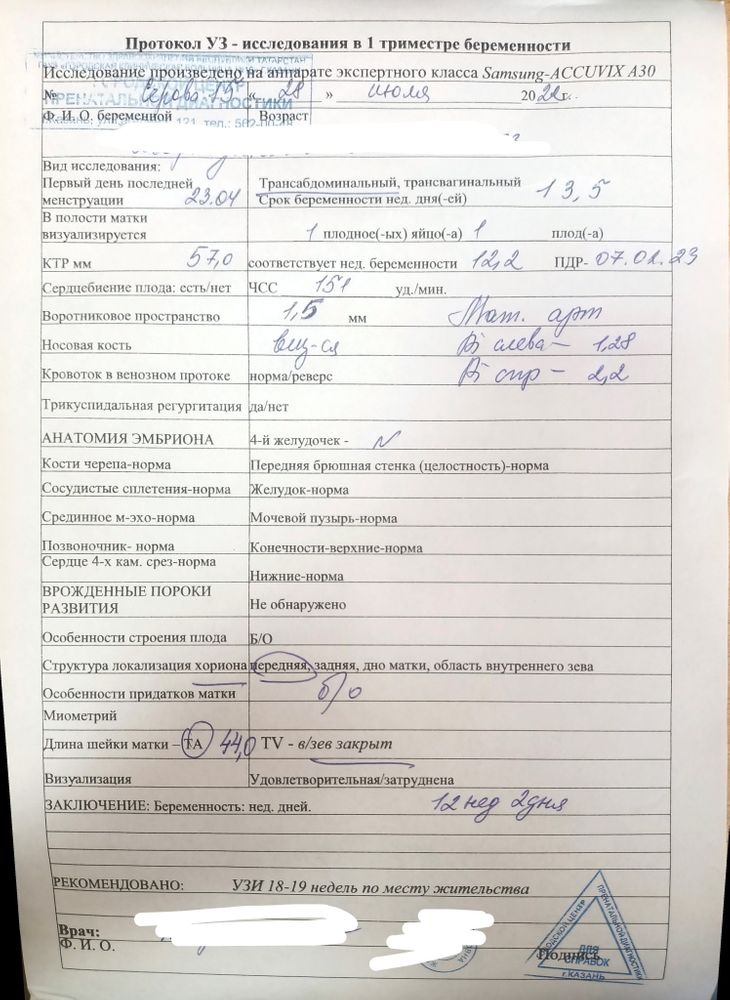 Протокол УЗ - исследования в 1 триместре беременности
Исследование произведено на аппарате экспертного класса Samsung-ACCUVIX A30
№ « 28 » июля 2022г.
ПРЕНАТАЛЬНОЙ ДИАГНОСТИКИ
Ф. И. О. беременной Возраст
Вид исследования:
Первый день последней менструации 23.04 Трансабдоминальный, трансвагинальный
Срок беременности нед. дня(-ей) 13,5
В полости матки визуализируется 1 плодное(-ых) яйцо(-а) 1 плод(-а)
КТР мм 57,0 соответствует нед. беременности 12,2 ПДР- 07.02.23
Сердцебиение плода: есть/нет ЧСС 151 уд./мин.
Воротниковое пространство 1,5 мм Мат. арт
Носовая кость виз-ся Pi слева – 1,28
Кровоток в венозном протоке норма/реверс Pi спр – 2,2
Трикуспидальная регургитация да/нет
АНАТОМИЯ ЭМБРИОНА 4-й желудочек - N
Кости черепа-норма Передняя брюшная стенка (целостность)-норма
Сосудистые сплетения-норма Желудок-норма
Срединное м-эхо-норма Мочевой пузырь-норма
Позвоночник- норма Конечности-верхние-норма
Сердце 4-х кам. срез-норма Нижние-норма
ВРОЖДЕННЫЕ ПОРОКИ РАЗВИТИЯ Не обнаружено
Особенности строения плода Б/О
Структура локализация хориона передняя, задняя, дно матки, область внутреннего зева
Особенности придатков матки б/о
Миометрий
Длина шейки матки – ТА 44,0 TV - в/зев закрыт
Визуализация Удовлетворительная/затруднена
ЗАКЛЮЧЕНИЕ: Беременность: нед. дней. 12 нед 2 дня
РЕКОМЕНДОВАНО: УЗИ 18-19 недель по месту жительства
Врач:
Ф. И. О. Подпись
ГОРОДСКОЙ ЦЕНТР ПРЕНАТАЛЬНОЙ ДИАГНОСТИКИ
ДЛЯ
СПРАВОК
г.КАЗАНЬ